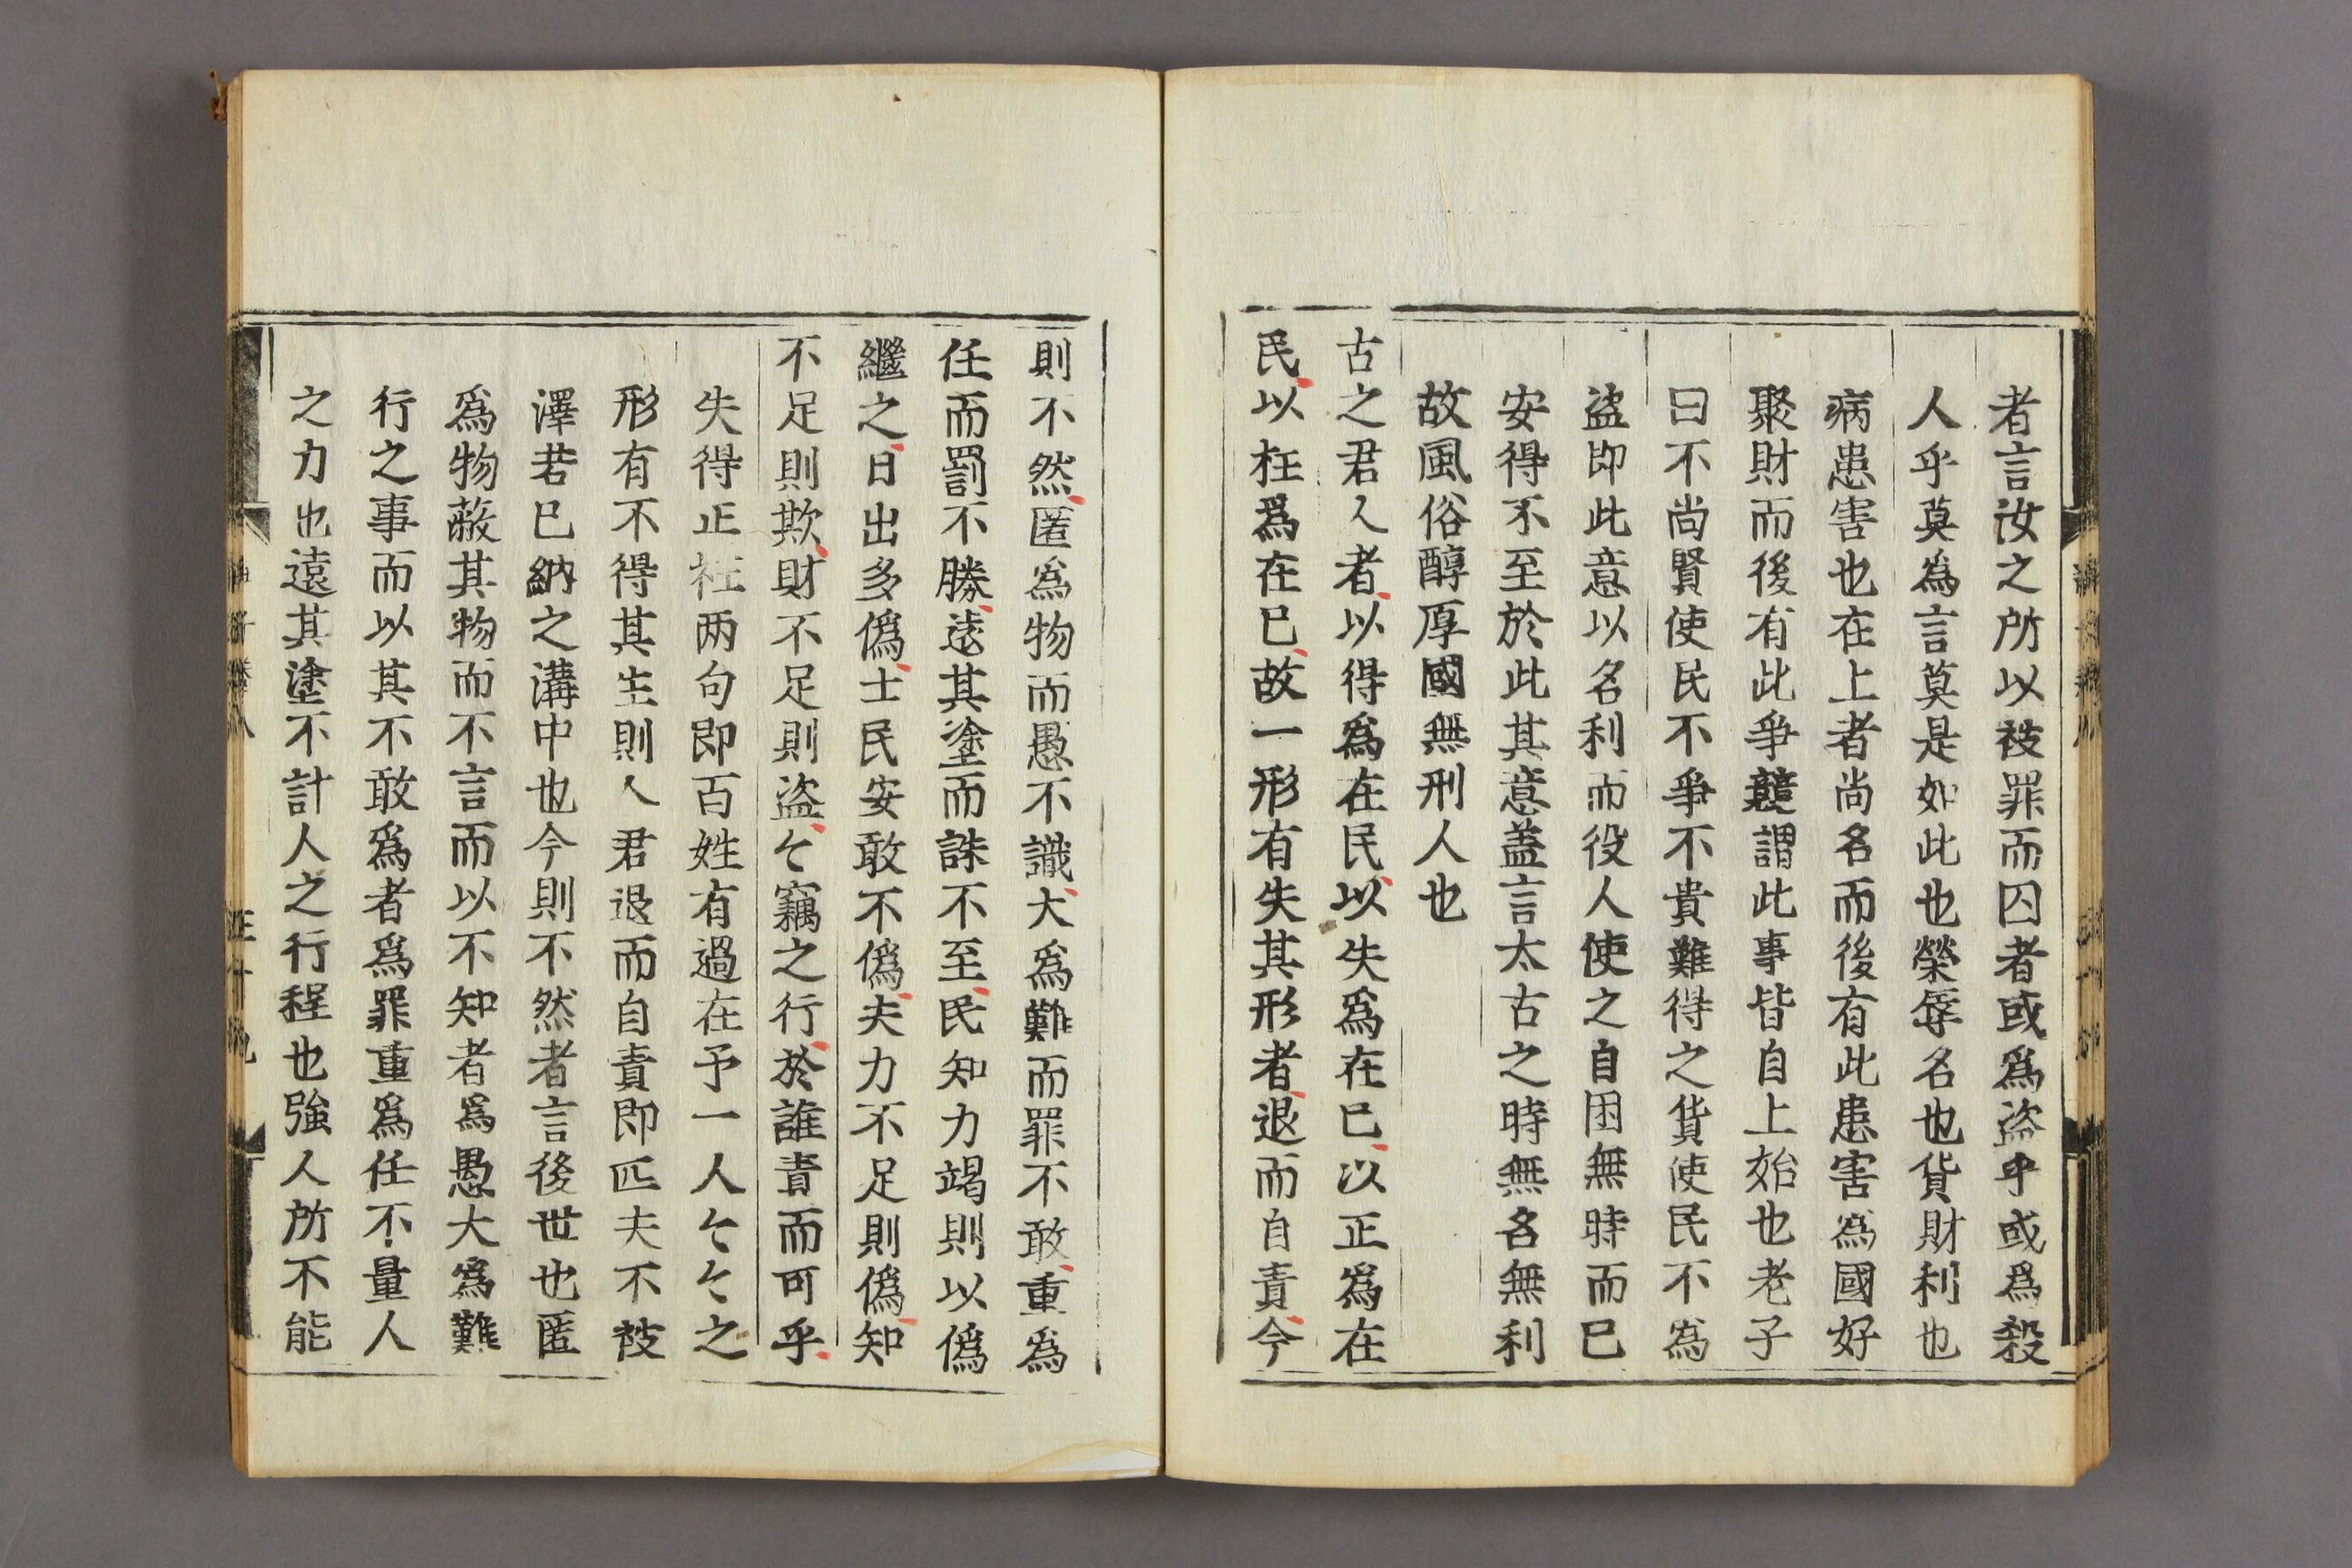 者言汝之所以被罪而囚者或爲盜乎或爲殺
人乎莫為言莫是如此也榮辱名也貨財利也
病患害也在上者尚名而後有此患害為國好
聚財而後有此爭競謂此事皆自上始也老子
曰不尚賢使民不爭不貴難得之貨使民不為
盜即此意以名利而役人使之自困無時而已
安得不至於此其意盖言太古之時無名無利
故風俗醇厚國無刑人也
古之君人者以得爲在民以失爲在已以正爲在
民以枉爲在已故一形有失其形者退而自責今
則不然匿為物而愚不識大爲難而罪不敢重爲
任而罰不勝遠其塗而誅不至民知力竭則以僞
繼之日出多僞士民安敢不僞夫力不足則僞知
不足則欺財不足則盜〻竊之行於誰責而可乎
失得正枉两句即百姓有過在予一人〻〻之
形有不得其生則人君退而自責即匹夫不被
澤若已納之溝中也今則不然者言後世也匿
爲物蔽其物而不言而以不知者爲愚大爲難
行之事而以其不敢爲者爲罪重爲任不量人
之力也遠其塗不計人之行程也強人所不能